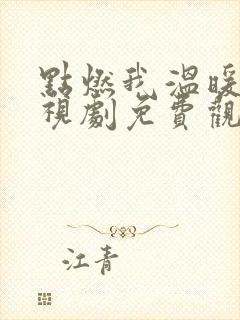 點燃我溫暖
視劇免費觀
江青